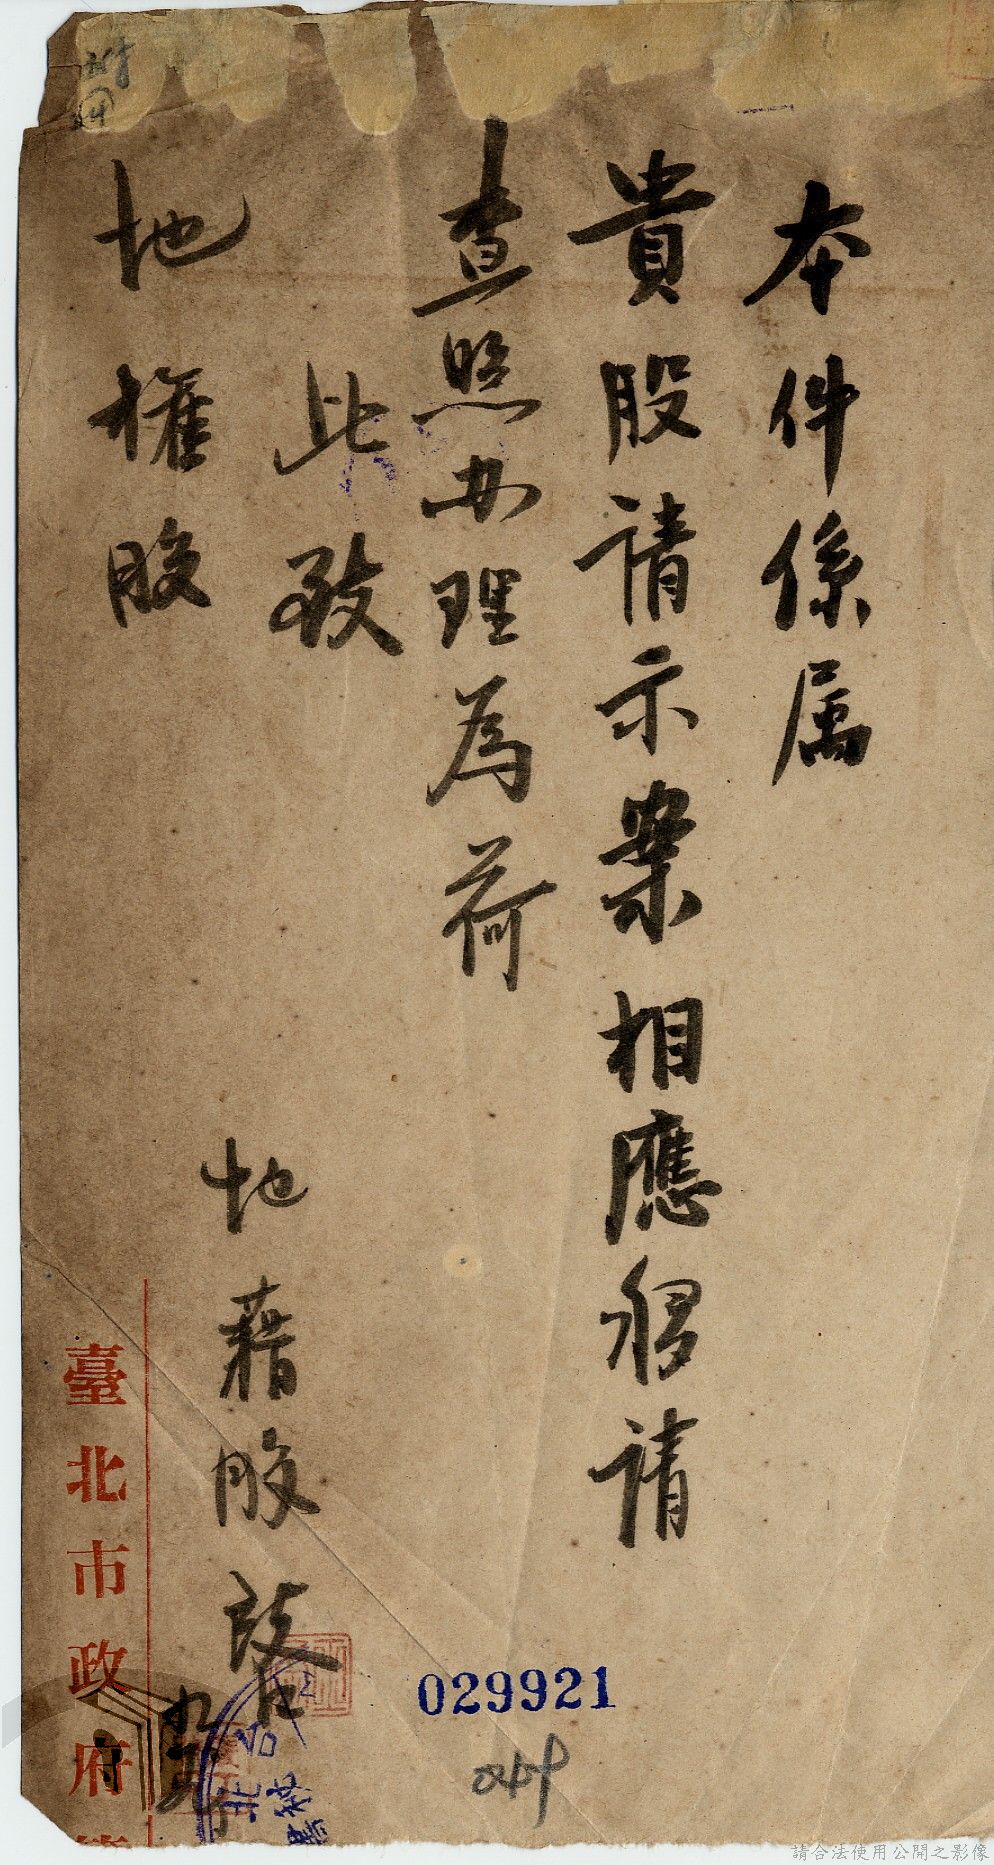 本件係属
貴股請示案相應移請
查照办理為荷
此致
地權股
地藉股啟
臺北市政府
029921
台北
請合法使用公開之影像